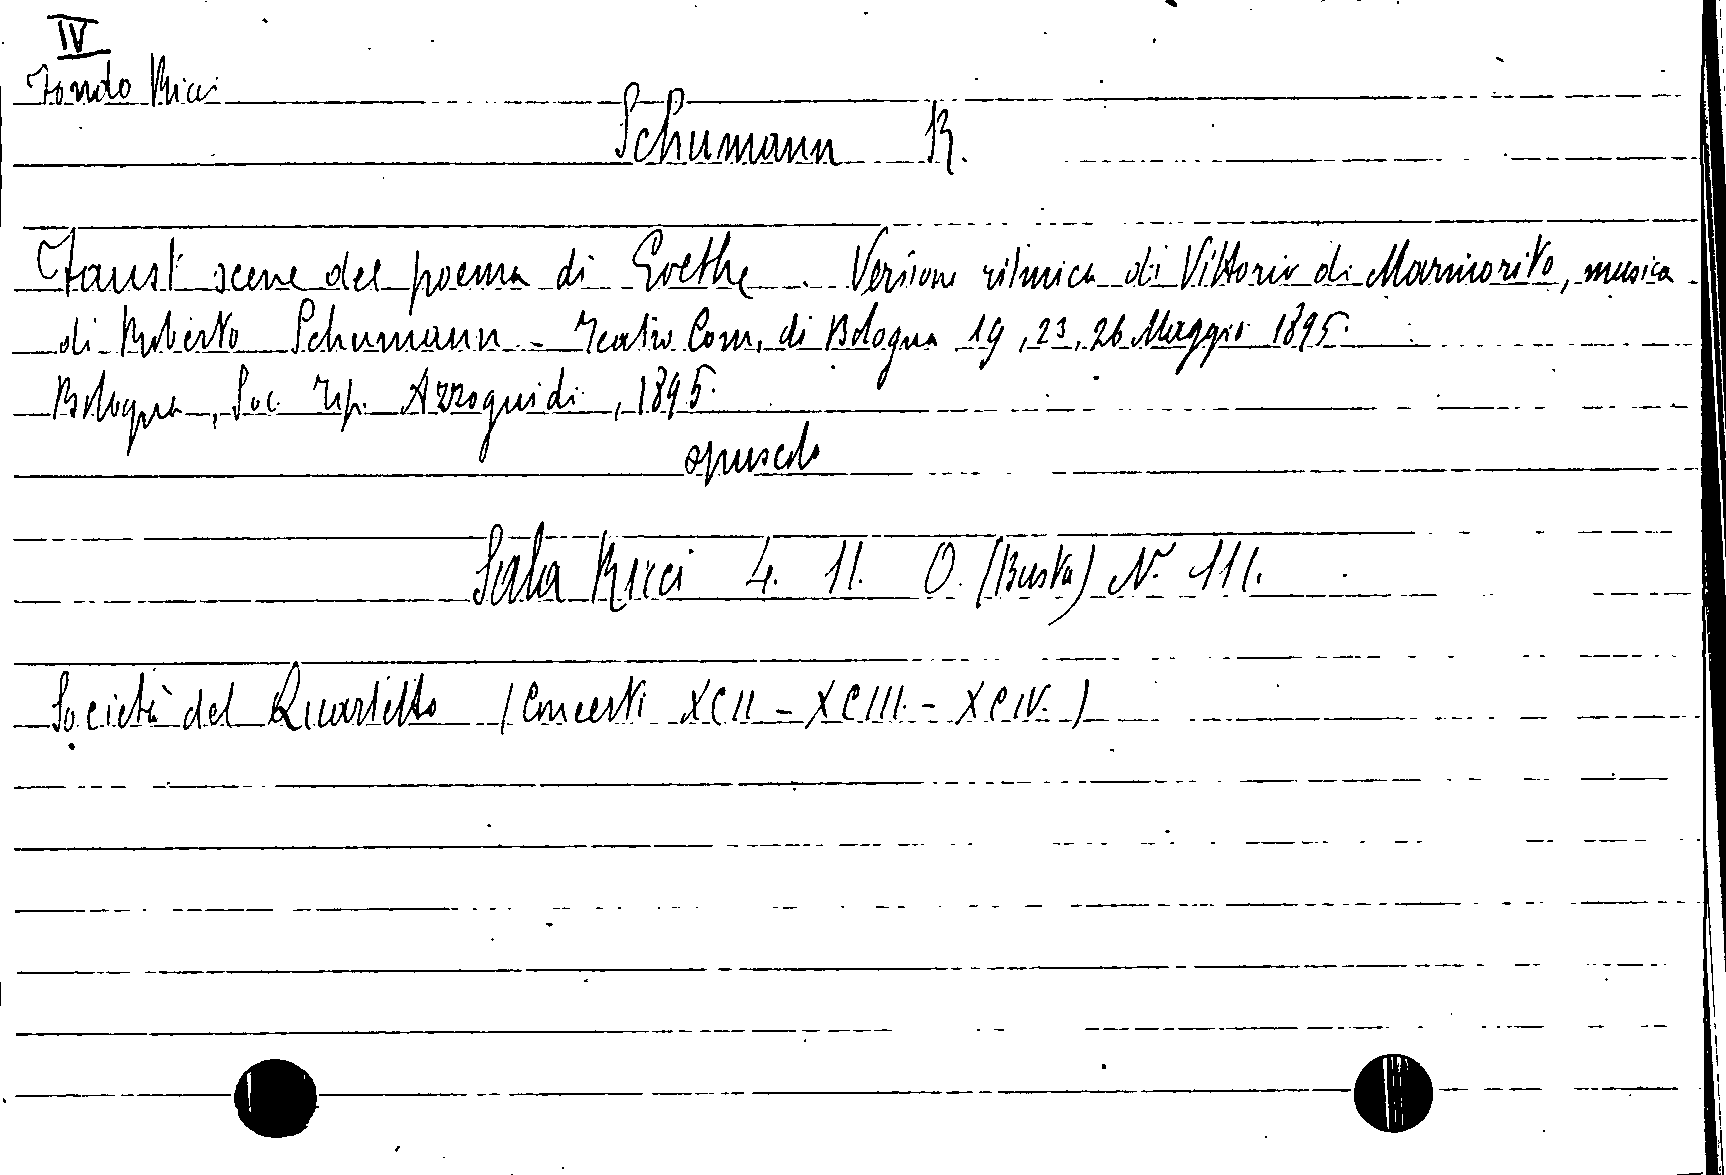 IV
Fondo Ricci
Schumann R.
Faust scene del poema di Goethe. Versione ritmica di Vittorio di Marmorito, musica
di Roberto Schumann - Teatro Com. di Bologna 19, 23, 26 Maggio 1895.
Bologna, Soc. Tip. Azzoguidi, 1895.
opuscolo
Sala Ricci 4. 11. O. (Busta) N. 111.
Società del Quartetto (Concerti XCII - XCIII. - XCIV.)